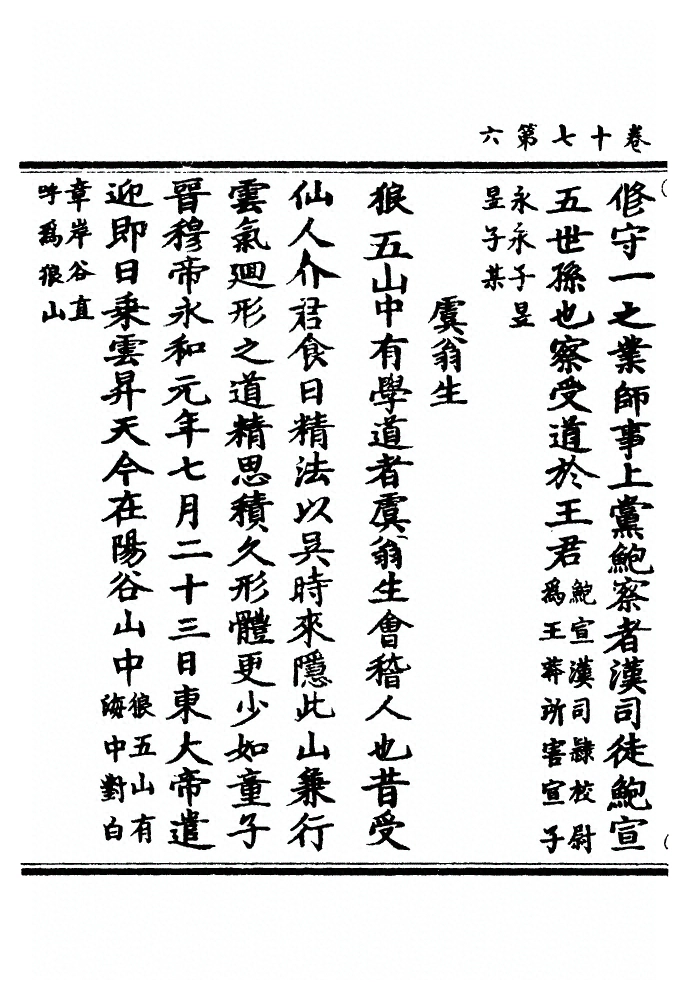 卷十七第六
修守一之業師事上黨鮑察者漢司徒鮑宣
五世孫也察受道於王君鮑宣漢司隸校尉
為王莽所害宣子
永永子昱
昱子某
虞翁生
狼五山中有學道者虞翁生會稽人也昔受
仙人介君食日精法以吳時來隱此山兼行
雲氣迴形之道精思積久形體更少如童子
晉穆帝永和元年七月二十三日東大帝遣
迎即日乘雲昇天今在陽谷山中狼五山有
海中對白
章岸谷直
呼為狼山